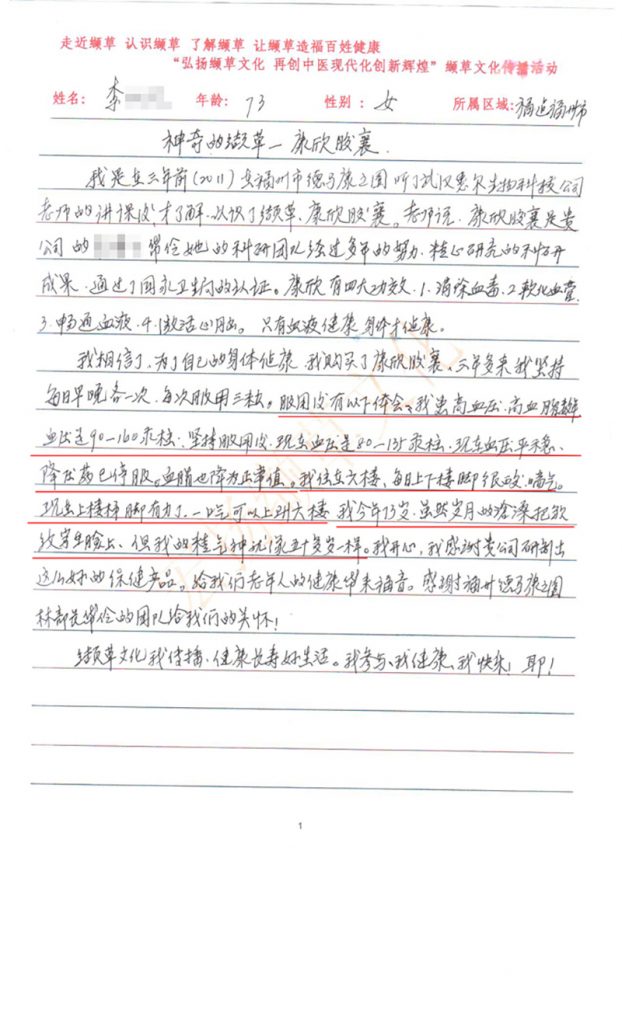 走近缬草 认识缬草 了解缬草 让缬草造福百姓健康
“弘扬缬草文化 再创中医现代化创新辉煌”缬草文化传播活动
姓名：李 年龄：73 性别：女 所属区域：福建福州市
神奇的缬草—康欣胶囊
我是在三年前(2011)在福州市德马康之园听了武汉惠尔生物科技公司
老师的讲课后，才了解、认识了缬草、康欣胶囊。老师说，康欣胶囊是贵
公司的 带领她的科研团队经过多年的努力、精心研究的科研
成果，通过了国家卫生局的认证。康欣有四大功效，1.消除血毒，2.软化血管，
3.畅通血液，4.激活心脑。只有血液健康身体才健康。
我相信了，为了自己的身体健康，我购买了康欣胶囊，三年多来我坚持
每日早晚各一次，每次服用三粒。服用后有以下体会：我患高血压、高血脂，
血压是90—160汞柱，坚持服用后，现在血压是80—135汞柱，现在血压平稳、
降压药已停服。血脂也降为正常值。我住在六楼，每日上下楼脚很酸，喘气。
现在上楼梯脚有力了，一口气可以上到六楼。我今年73岁，虽然岁月的沧桑把我
放牢脸上，但我的精气神就像五十多岁一样。我开心，我感谢贵公司研制出
这么好的保健产品。给我们老年人的健康带来福音。感谢福州德马康之园
林部长带领的团队给我们的关怀！
缬草文化我传播，健康长寿好生活。我参与、我健康、我快乐！耶！
1